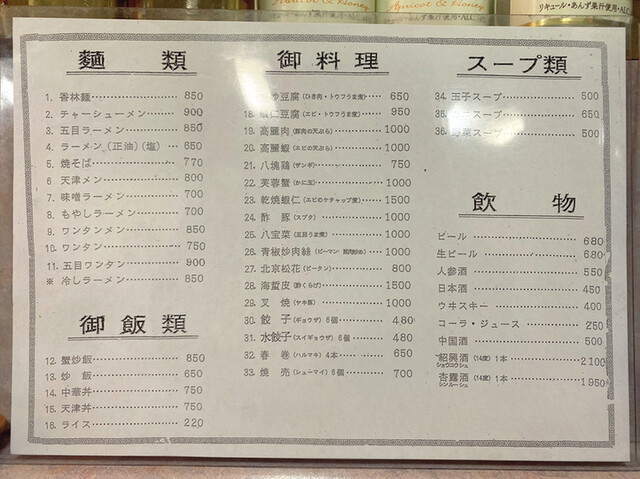 Apricot & Honey
Apricot & Honey
リキュール・あんず果汁使用・ALC
麺類
1. 香林麺 850
2. チャーシューメン 900
3. 五目ラーメン 850
4. ラーメン(正油)(塩) 650
5. 焼そば 770
6. 天津メン 800
7. 味噌ラーメン 700
8. もやしラーメン 700
9. ワンタンメン 850
10. ワンタン 750
11. 五目ワンタン 900
※ 冷しラーメン 850
御飯類
12. 蟹炒飯 850
13. 炒飯 650
14. 中華丼 750
15. 天津丼 750
16. ライス 220
御料理
豆腐(ひき肉・トウフうま煮) 650
18. 蝦仁豆腐(エビ・トウフうま煮) 950
19. 高麗肉(豚肉の天ぷら) 1000
20. 高麗蝦(エビの天ぷら) 1000
21. 八塊鶏(ザンギ) 750
22. 芙蓉蟹(かに玉) 1000
23. 乾焼蝦仁(エビのケチャップ煮) 1000
24. 酢豚(スブタ) 1000
25. 八宝菜(五目うま煮) 1000
26. 青椒炒肉絲(ピーマン・豚肉炒め) 1000
27. 北京松花(ピータン) 800
28. 海蜇皮(酢くらげ) 1500
29. 叉焼(ヤキ豚) 1000
30. 餃子(ギョウザ)6個 480
31. 水餃子(スイギョウザ)6個 480
32. 春巻(ハルマキ)4本 650
33. 焼売(シューマイ)6個 700
スープ類
34. 玉子スープ 500
35. スープ 650
36. 野菜スープ 500
飲物
ビール 680
生ビール 680
人参酒 550
日本酒 450
ウヰスキー 400
コーラ・ジュース 250
中国酒 500
紹興酒(14度)1本 2100
ショウコウシュ
杏露酒(14度)1本 1950
シンルーシュ